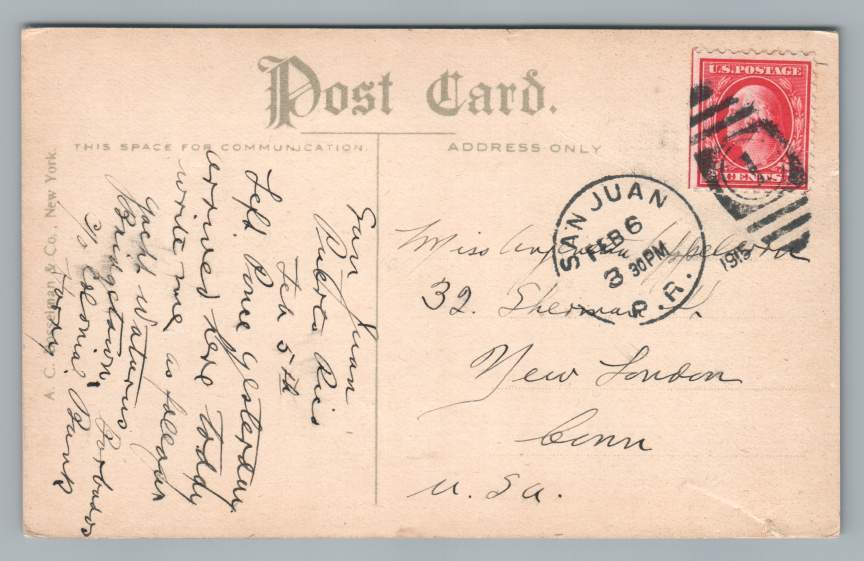 Post Card.
THIS SPACE FOR COMMUNICATION.
ADDRESS ONLY
U.S. POSTAGE
2 CENTS 2
SAN JUAN
FEB 6
3 30 PM
P. R.
1915
San Juan
Puerto Rico
Feb 5th
Left Ponce yesterday
arrived here today
write me as follows
Yacht
Bridgetown, Barbados
c/o Colonial Bank
Tony
Miss
32. Sherman St.
New London
Conn
U. S a.
A. C. Bosselman & Co., New York.